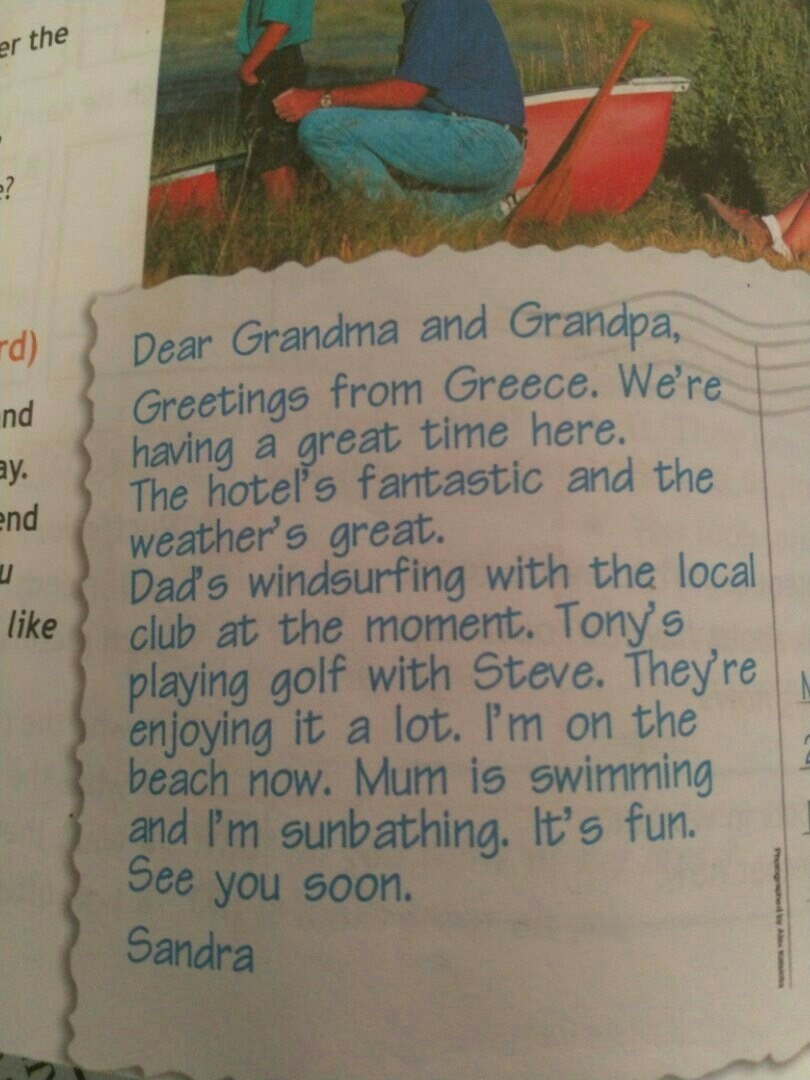 er the
e?
rd)
nd
ay.
end
u
like
Dear Grandma and Grandpa,
Greetings from Greece. We're
having a great time here.
The hotel's fantastic and the
weather's great.
Dad's windsurfing with the local
club at the moment. Tony's
playing golf with Steve. They're
enjoying it a lot. I'm on the
beach now. Mum is swimming
and I'm sunbathing. It's fun.
See you soon.
Sandra